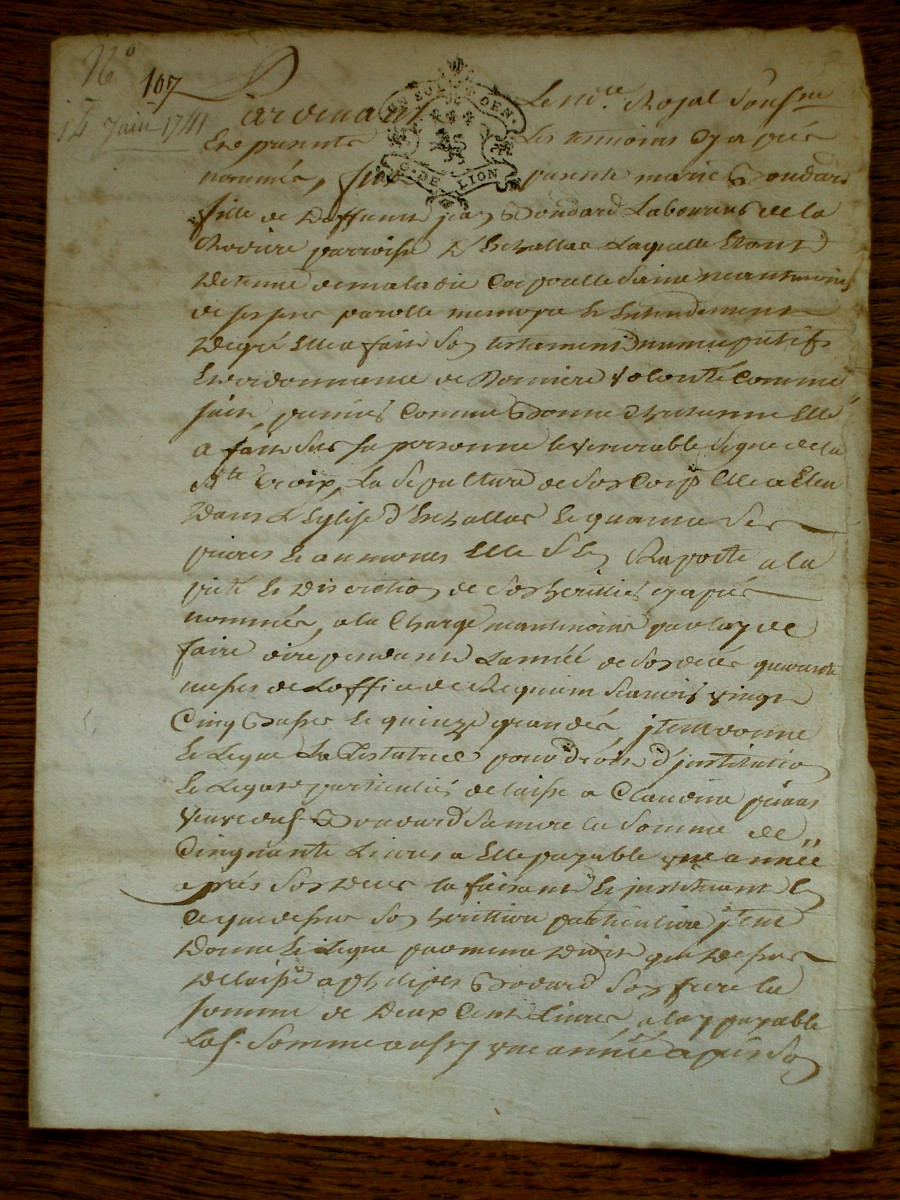 N.o 107
14 Juin 1741
UN SOL 4 DEN.
G. DE LION
Pardevant Le no.re Royal Sousné
Et en presence Les temoins cy apres
nommés, fut presente marie Boudard
fille de deffunt jean Boudard Laboureur de la
Rodiere parroisse d'Echallas Laquelle Etant
detenue de maladie Corporelle Saine neantmoins
de ses sens parolle memoire Et Entendement
de gré Elle a fait son testament nuncupatif
Et ordonnance de derniere volonté comme
suit premier comme Bonne chretienne Elle
a fait sur sa personne le venerable signe de la
S.te Croix, La sepulture de son Corps Elle a Eleu
dans L'Eglise d'Echallas Et quand a ses
prieres Et aumones Elle s'En Raporte a la
pieté Et discretion de son heritier cy apres
nommé, a la Charge neantmoins par luy de
faire dire pendant L'année de son deces quarante
messes de L'office de Requiem scavoir vingt
Cinq Basses Et quinze grandes, jtem donne
Et Legue La Testatrice pour droit d'institution
Et Legat particulier delaisse a Claudine
veuve dud. Boudard sa mere la somme de
Cinquante Livres a Elle payable une année
apres son deces la faisant Et instituant En
ce que dessus son heritiere particuliere jtem
donne Et Legue par meme droit que dessus
delaisse a philipes Bodard son frere la
somme de Deux Cent Livres a luy payable
Lad. Somme aussy une année apres son